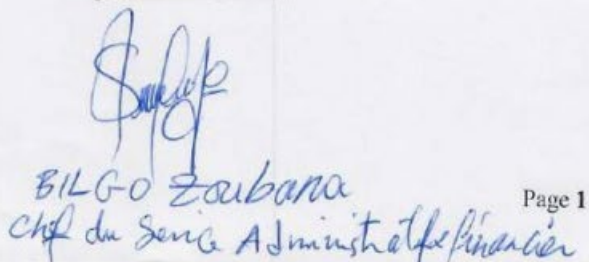 BILGO Zoubana
Page 1
Chef du Service Administratif & financier